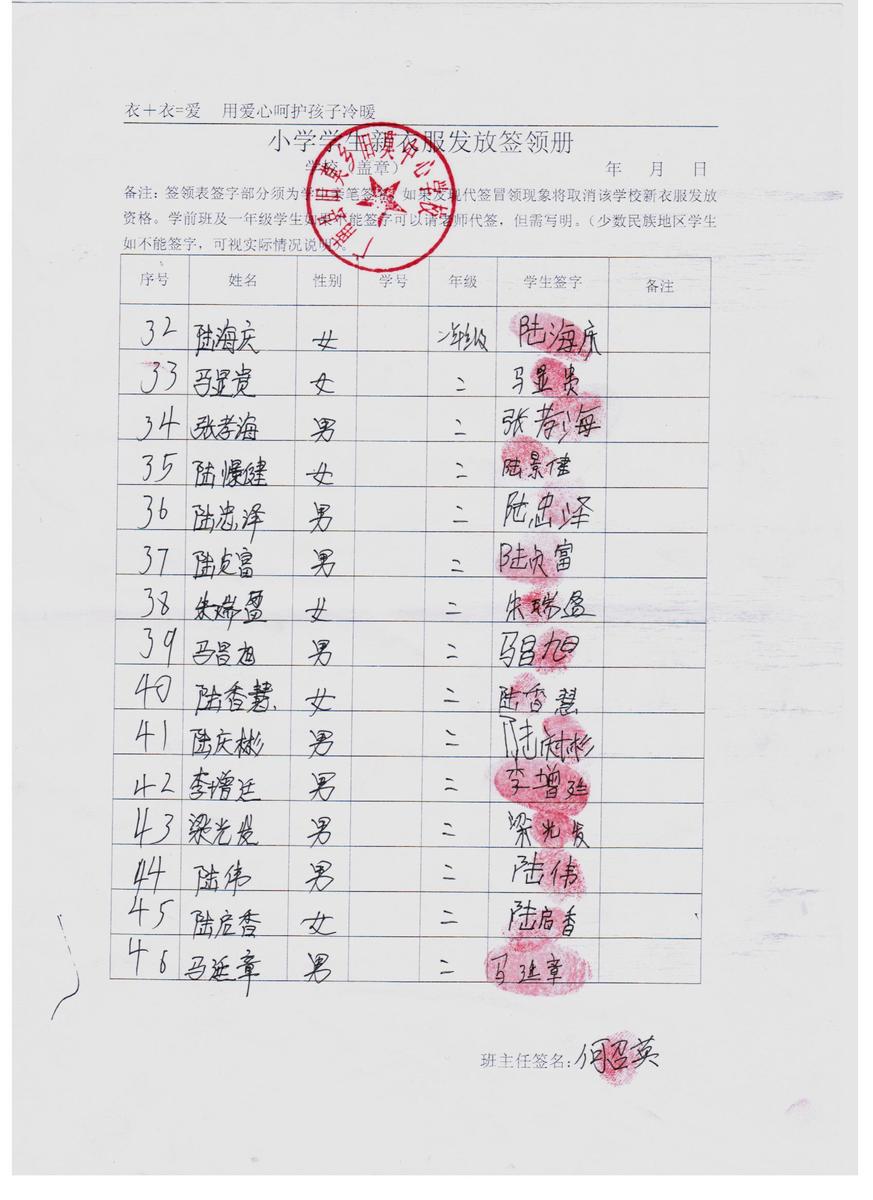 衣＋衣=爱 用爱心呵护孩子冷暖
小学学生新衣服发放签领册
学校（盖章） 年 月 日
备注：签领表签字部分须为学生亲笔签 如果发现代签冒领现象将取消该学校新衣服发放
资格。学前班及一年级学生如果不能签字可以请老师代签，但需写明。（少数民族地区学生
如不能签字，可视实际情况说明）。
广南县 莫乡旧莫中心学校
序号 姓名 性别 学号 年级 学生签字 备注
32 陆海庆 女 二年级 陆海庆
33 马显贵 女 二 马显贵
34 张孝海 男 二 张孝海
35 陆 健 女 二 陆景健
36 陆忠泽 男 二 陆忠泽
37 陆贞富 男 二 陆贞富
38 朱瑞盈 女 二 朱瑞盈
39 马昌旭 男 二 马昌旭
40 陆香慧 女 二 陆香慧
41 陆庆彬 男 二 陆 彬
42 李增廷 男 二 李增
43 梁光发 男 二 梁光发
44 陆伟 男 二 陆伟
45 陆启香 女 二 陆启香
46 马延章 男 二 马延章
班主任签名：何召英